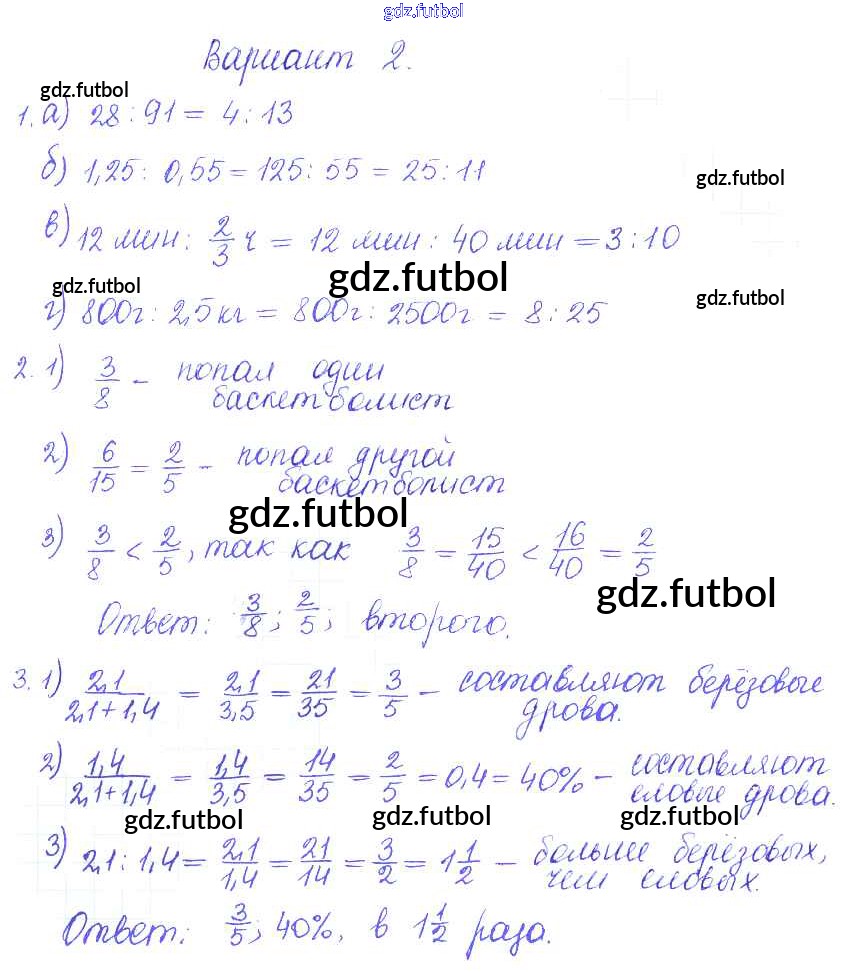 gdz.futbol
Вариант 2.
gdz.futbol
1. а) 28 : 91 = 4 : 13
б) 1,25 : 0,55 = 125 : 55 = 25 : 11
gdz.futbol
в) 12 мин : 2/3 ч = 12 мин : 40 мин = 3 : 10
gdz.futbol gdz.futbol gdz.futbol
г) 800г : 2,5кг = 800г : 2500г = 8 : 25
2. 1) 3/8 – попал один
баскетболист
2) 6/15 = 2/5 – попал другой
баскетболист
gdz.futbol
3) 3/8 < 2/5, так как 3/8 = 15/40 < 16/40 = 2/5
gdz.futbol
Ответ: 3/8; 2/5; второго.
3. 1) 2,1/(2,1+1,4) = 2,1/3,5 = 21/35 = 3/5 – составляют берёзовые
дрова.
2) 1,4/(2,1+1,4) = 1,4/3,5 = 14/35 = 2/5 = 0,4 = 40% – составляют
еловые дрова.
gdz.futbol gdz.futbol gdz.futbol
3) 2,1 : 1,4 = 2,1/1,4 = 21/14 = 3/2 = 1 1/2 – больше берёзовых,
чем еловых.
Ответ: 3/5; 40%, в 1 1/2 раза.